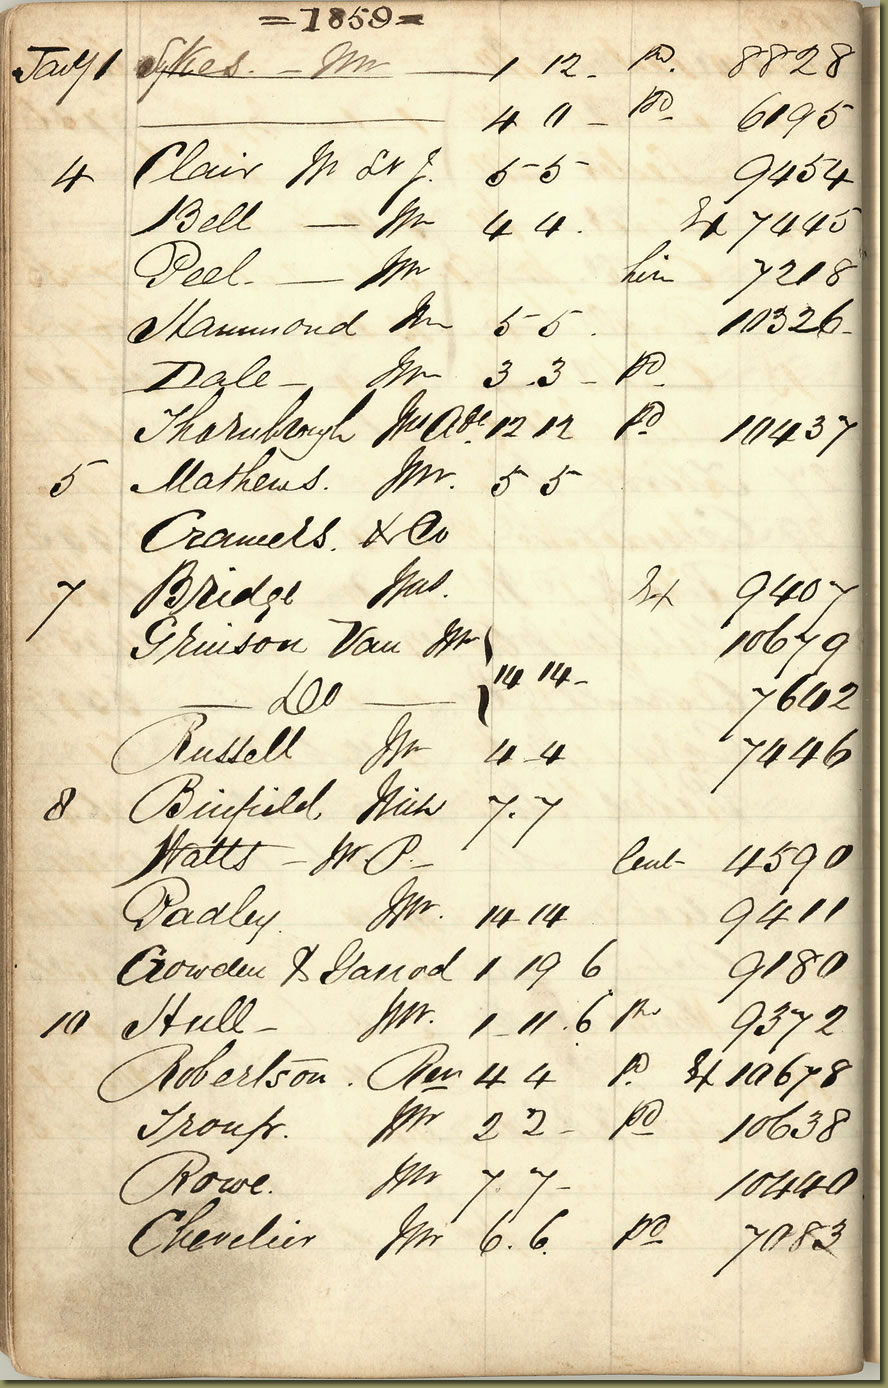 = 1859 =
Jany 1 Sykes. — Mr — 1 12 - Pd. 8828
— 4 0 - Pd 6195
4 Clair Mr St J. 5 5 9454
Bell — Mr 4 4. Ex 7445
Peel. — Mr hire 7218
Hammond Mr 5 5. 10326
Dale — Mr 3.3 - Pd
Thornbrough 12 12 Pd 10437
5 Mathews. Mr. 5 5
Cramers. & Co
7 Bridge Mrs. Ex 9407
Grinson Van Mr 10679
— Do — } 14 14 - 7602
Russell Mr 4 - 4 7446
8 Binfield, 7.7
Watts — W P. — Lent 4590
Padley. Mr. 14 14 9411
Gowden & Garrod 1 19 6 9180
10 Hull — Mr. 1 - 11.6 Pd 9372
Robertson. Rev 4 4 Pd Ex 10678
Troup. Mr 2 2 - Pd 10638
Rowe. Mr 7 7 - 10440
Chevelier Mr 6.6. Pd 7083